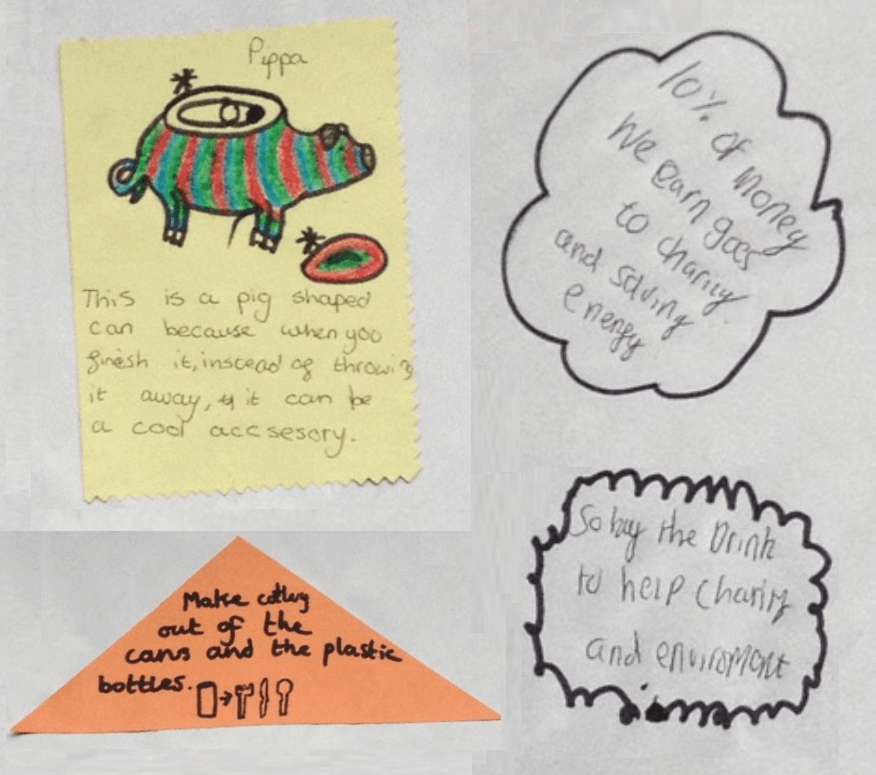 Pippa
This is a pig shaped
can because when you
finesh it, instead of throwing
it away, it can be
a cool accsesory.
10% of money
We earn goes
to charity
and solving
energy
Make cutlery
out of the
cans and the plastic
bottles.
So buy the Drink
to help charity
and enviroment